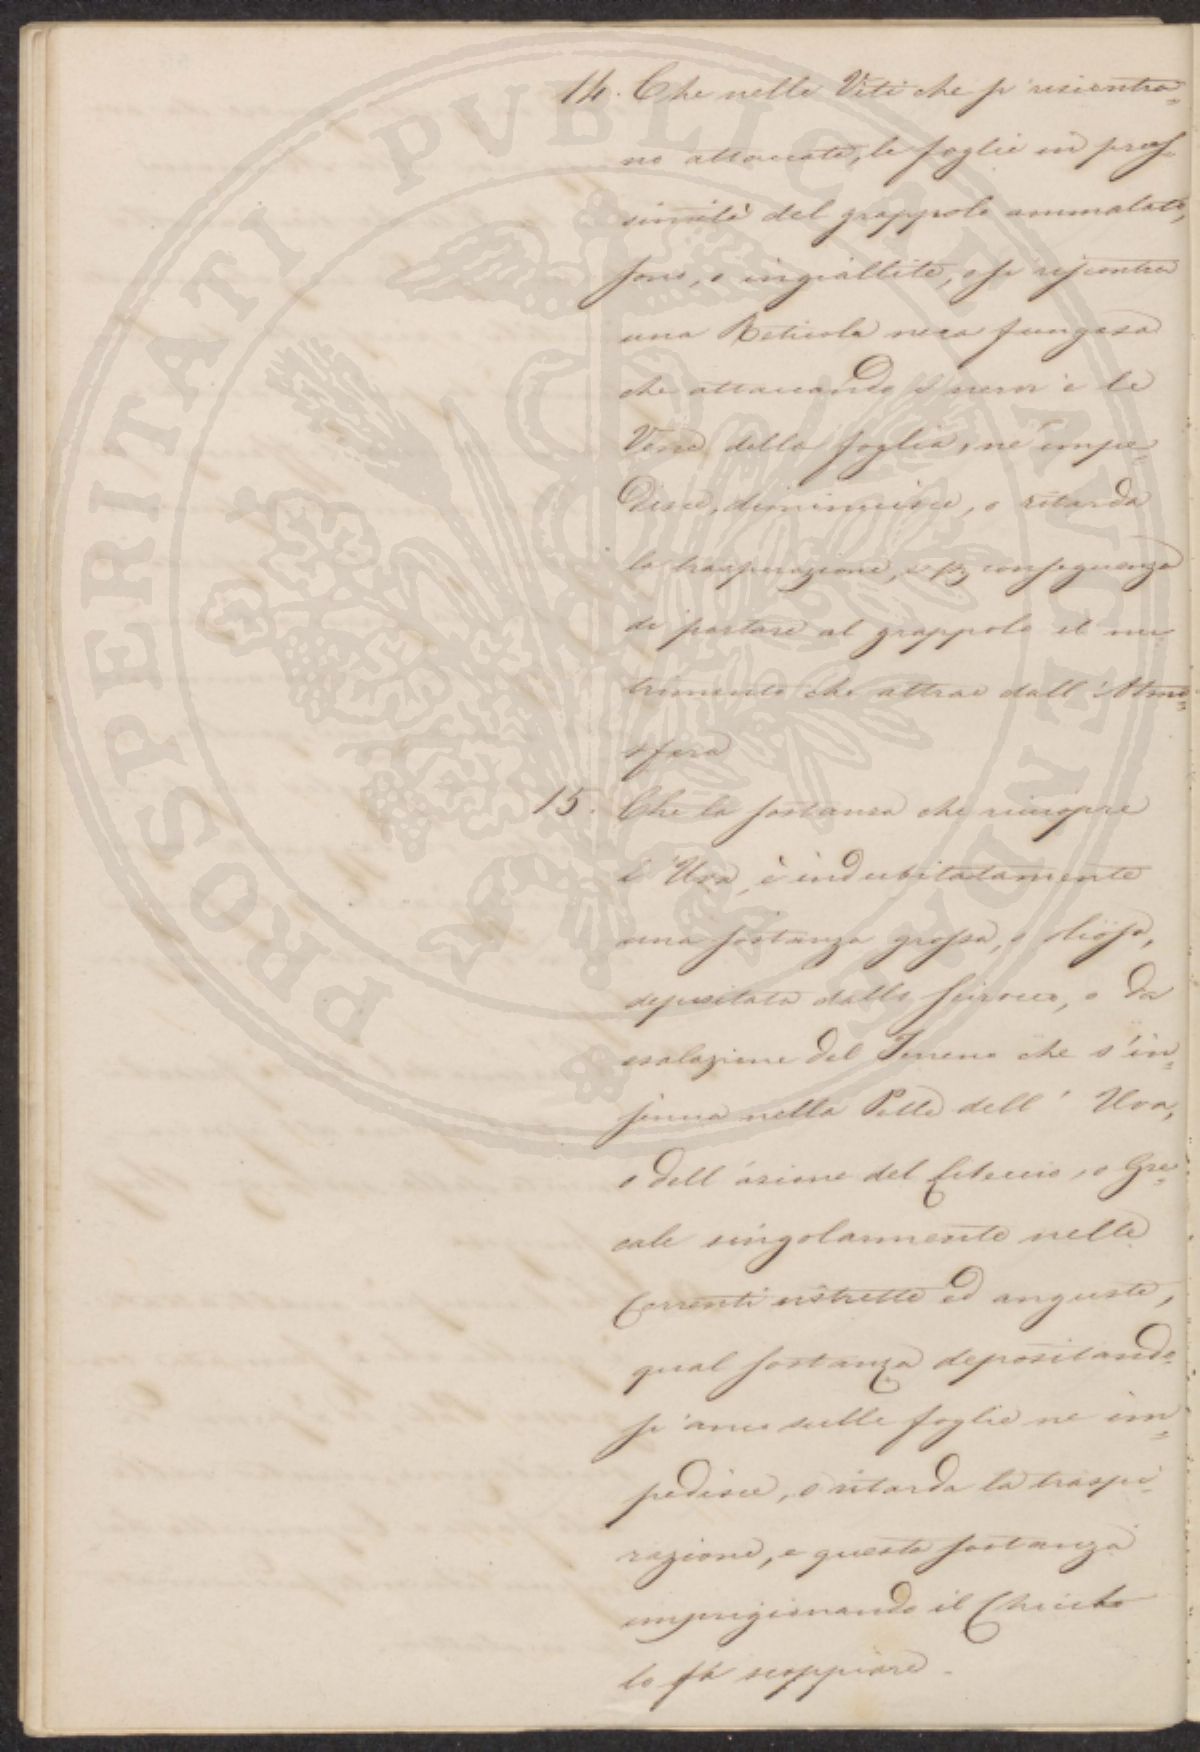 14. Che nelle Viti che si riscontra=
no attaccate, le foglie in pros=
simità del grappolo ammalato,
sono, o ingiallite, o si riscontra
una Reticola nera fungosa
che attaccando i nervi e le
Vene della foglia, ne impe=
disce, diminuisce, o ritarda
la traspirazione, e p consequenza
di portare al grappolo il nu
trimento che attrae dall'Atmo=
sfera
15. Che la sostanza che ricuopre
l'Uva, è indubitatamente
una sostanza grassa, o oliosa,
depositata dallo Scirocco, o da
esalazione del Terreno che s'in=
sinua nella Pelle dell' Uva,
o dell'azione del Libeccio, o Gre=
cale singolarmente nelle
Correnti ristrette ed anguste,
qual sostanza depositando
si anco sulle foglie ne im=
pedisce, o ritarda la traspi=
razione, e questa sostanza
imprigionando il Chicco
lo fà scoppiare.
PROSPERITATI PUBLICAE AUGENDAE